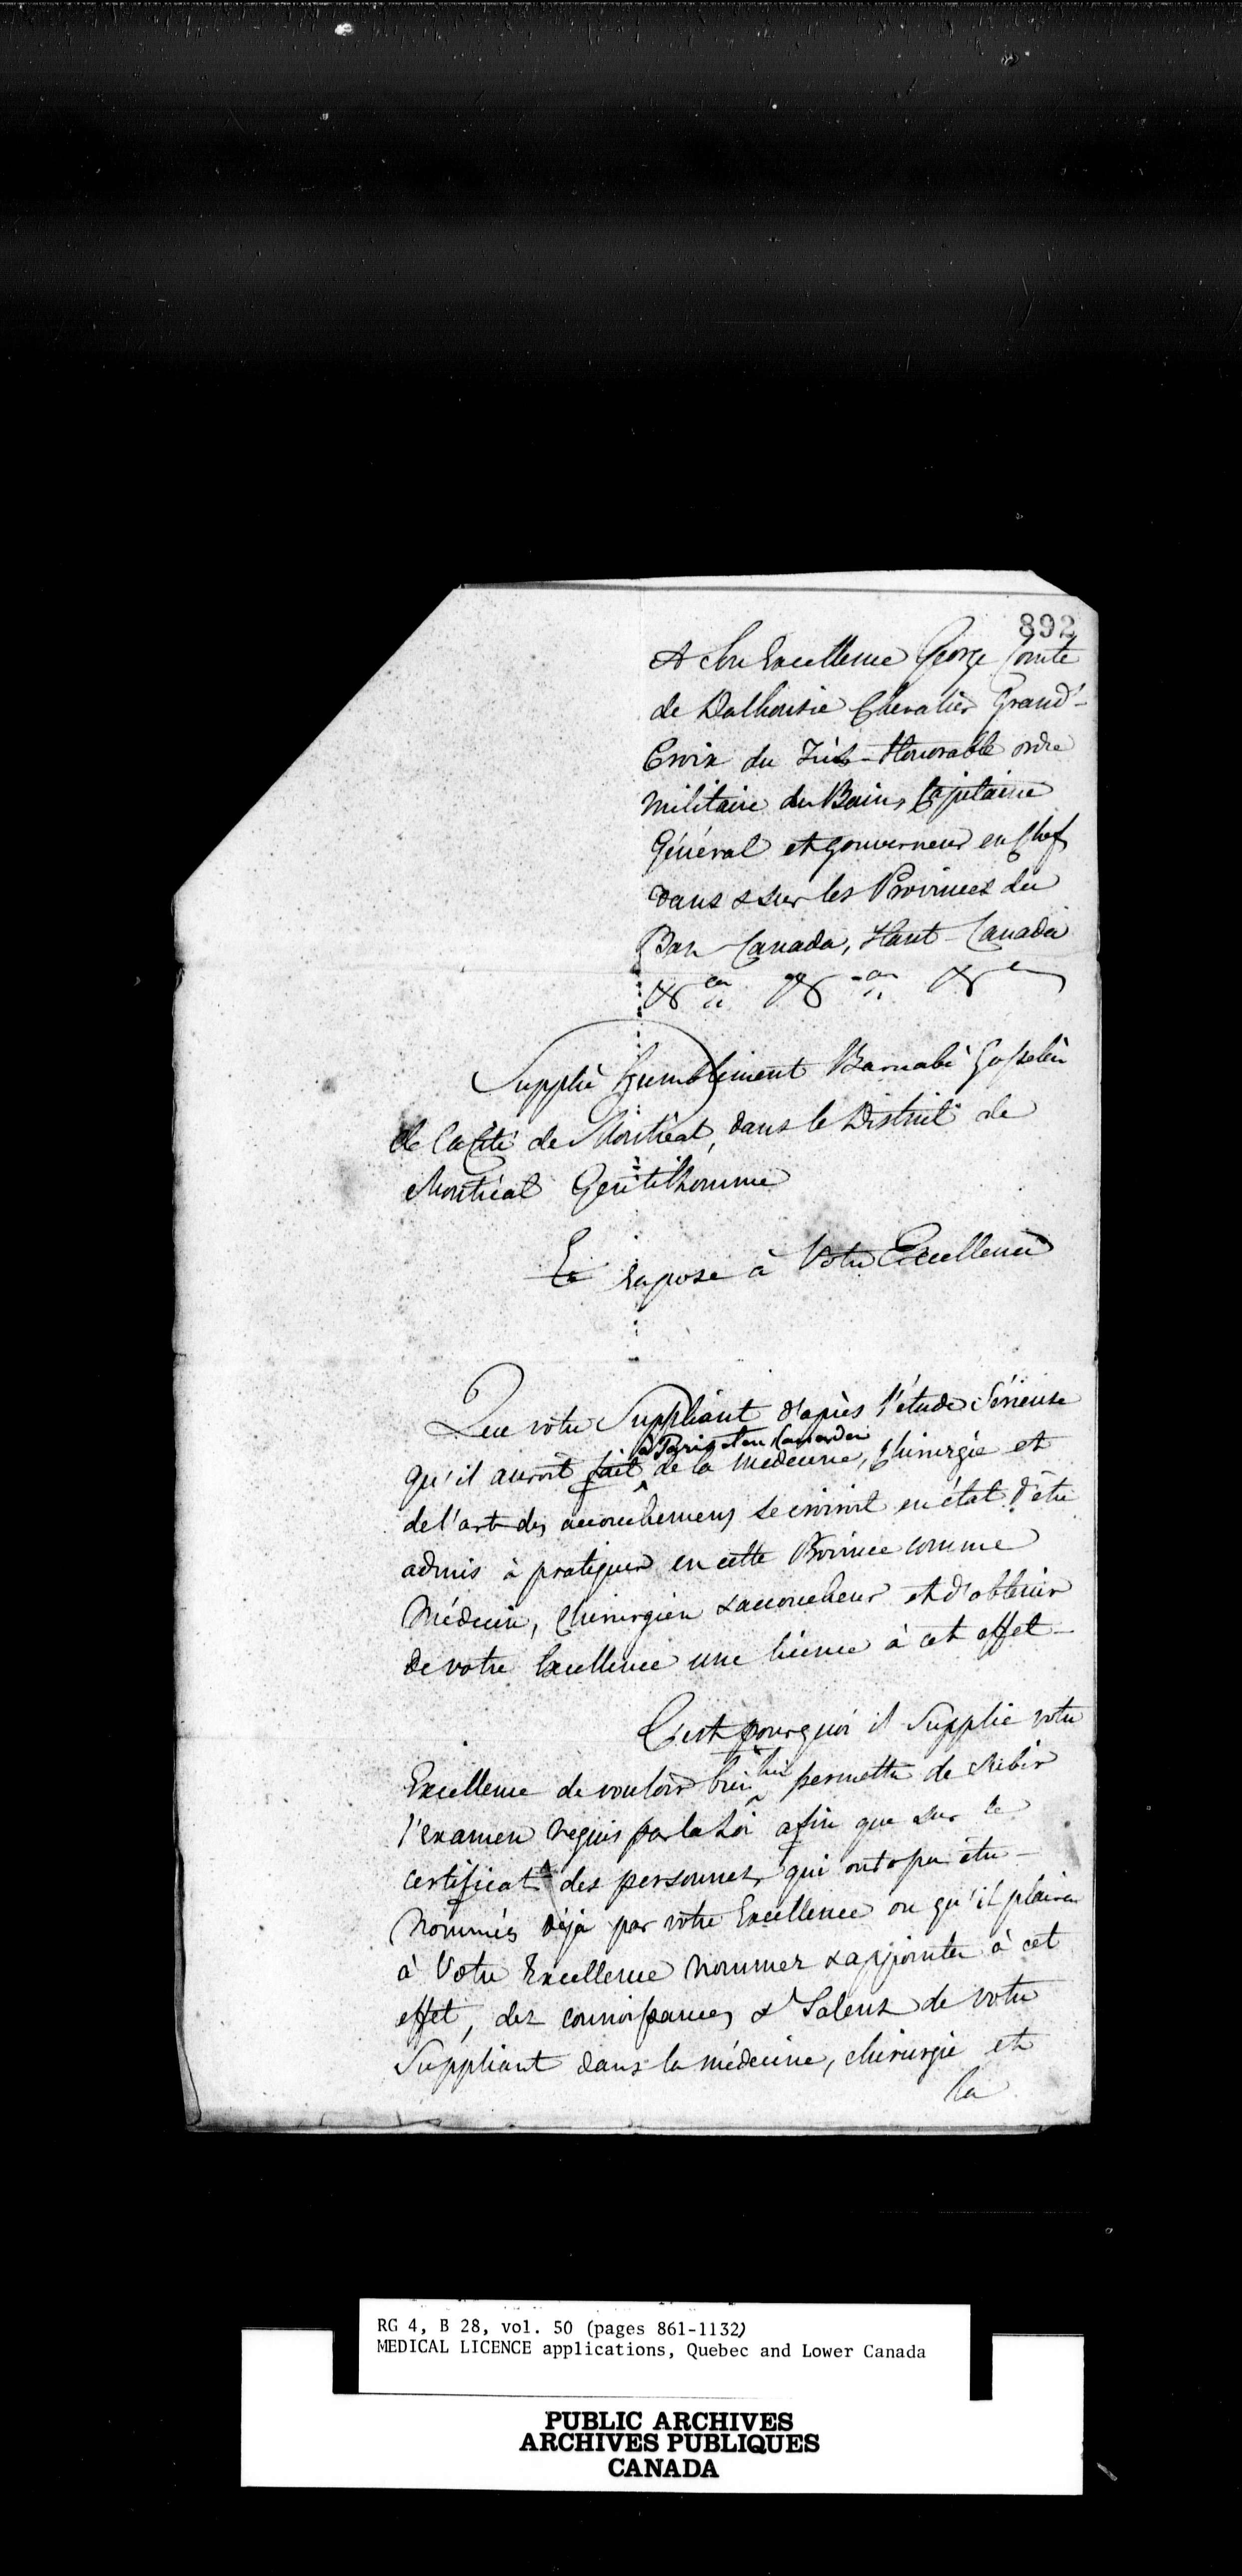 892
A Son Excellence George Comte
de Dalhousie Chevalier Grand'-
Croix du Très-Honorable ordre
militaire du Bain, Capitaine
Général et Gouverneur en Chef
dans & sur les Provinces du
Bas Canada, Haut-Canada
&ca &ca &c
Supplie humblement Barnabé Gosselin
de la Cité de Montréal, dans le District de
Montréal Gentilhomme
Et Expose à Votre Excellence
Que votre Suppliant d'après l'étude Sérieuse
à Paris et en Canada
qu'il auroit fait de la Médecine, Chirurgie et
de l'art des accouchemens se croiroit en état d'être
admis à pratiquer en cette Province comme
Médecin, Chirurgien & accoucheur et d'obtenir
de votre Excellence une licence à cet effet-
C'est pourquoi il Supplie votre
Excellence de vouloir bien lui permettre de Subir
l'examen requis par la Loi afin que sur le
certificat des personnes qui ont pu être-
Nommées déjà par votre Excellence ou qu'il plaira
à Votre Excellence nommer & appointer à cet
effet, des connoissances & Talens de votre
Suppliant dans la médecine, chirurgie et
la
RG 4, B 28, vol. 50 (pages 861-1132)
MEDICAL LICENCE applications, Quebec and Lower Canada
PUBLIC ARCHIVES
ARCHIVES PUBLIQUES
CANADA